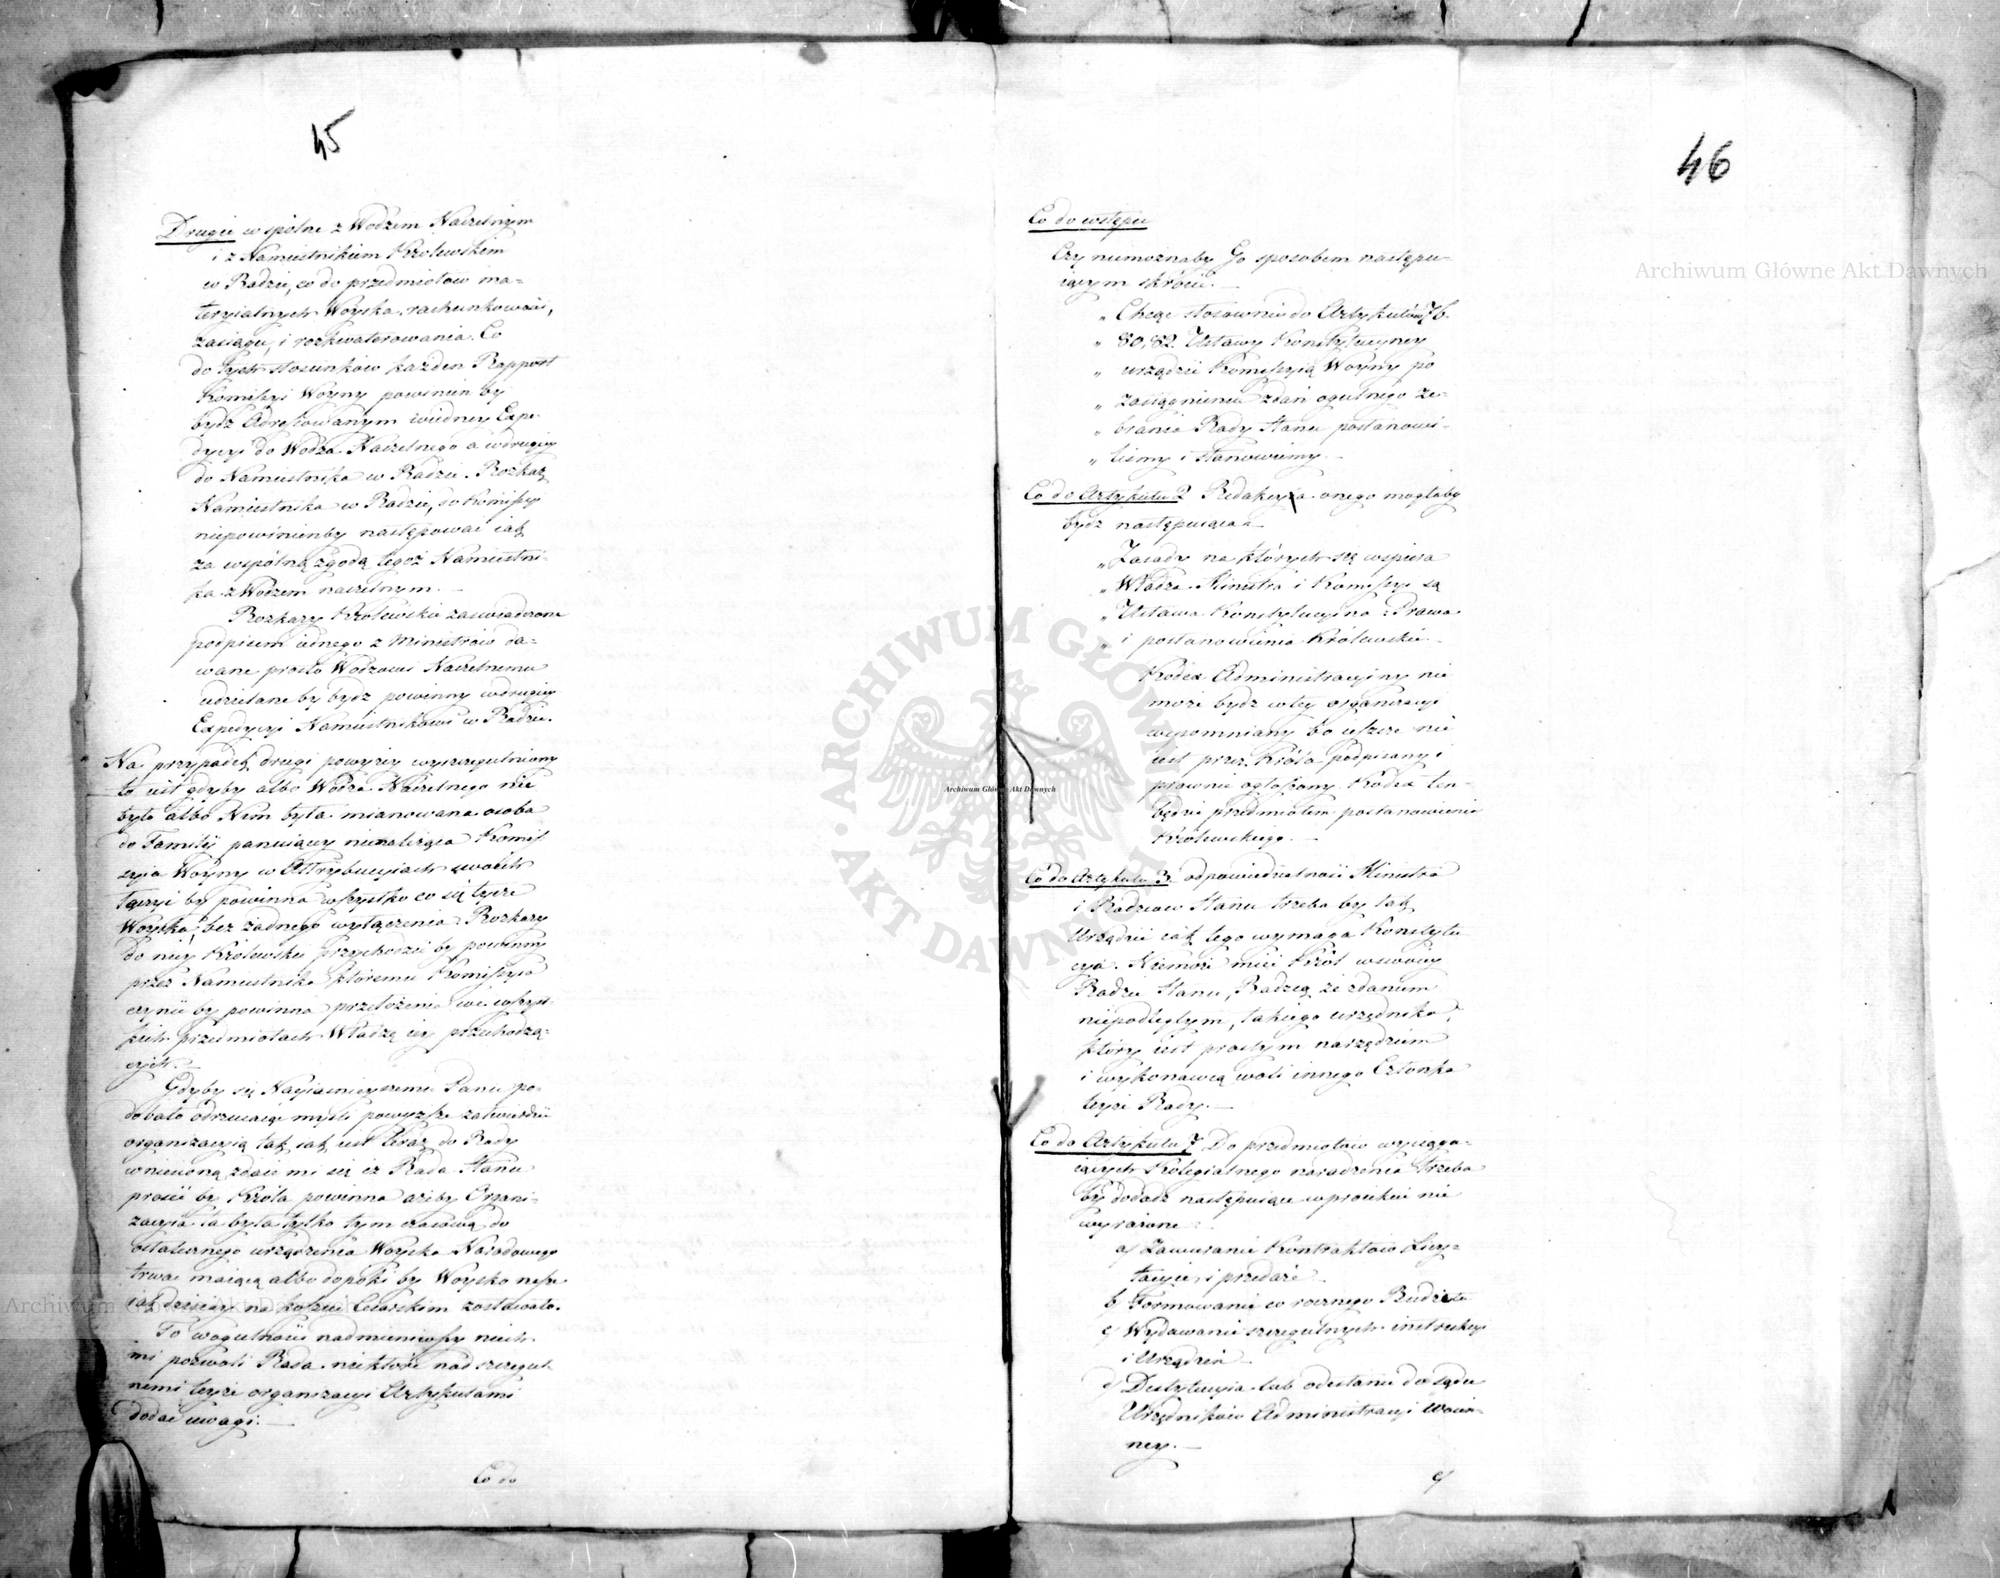 45
Drugie wspólne z Wodzem Naczelnym
i z Namiestnikiem Królewskim
w Radzie, co do przedmiotów ma-
teryialnych Woyska, rachunkowości,
zaciągu, i rozkwaterowania. Co
do tych stosunków każden Rapport
Kommissyi Woyny powinien by
bydź adressowanym w iedney Expe-
dycyi do Wodza Naczelnego a w drugiey
do Namiestnika w Radzie. Rozkazy
Namiestnika w Radzie, do Kommissyi
niepowinienby następować iak
za wspólną zgodą tegoż Namiestni-
ka z Wodzem naczelnym. —
Rozkazy Królewskie zaświadczone
podpisem iednego z Ministrów da-
wane prosto Wodzowi Naczelnemu
udzielane by bydź powinny w drugiey
Expedycyi Namiestnikowi w Radzie.
Na przypadek drugi powyżey wyszczegulniony
to iest gdyby albo Wodza Naczelnego nie
było albo Nim była mianowana osoba
do Familij panuiącey nienależąca Kommis-
syia Woyny w Attrybucyiach swoich
łączyć by powinna wszystko co się tycze
Woyska, bez żadnego wyłączenia. Rozkazy
do niey Królewskie przychodzić by powinny
przez Namiestnika któremu Kommissyia
czynić by powinna przełożenia we wszyst-
kich przedmiotach Władzę iey przechodzą-
cych. —
Gdyby się Nayiaśnieyszemu Panu po-
dobało odrzucaiąc myśli powyższe zatwierdzić
organizacyią tak iak iest teraz do Rady
wniesioną zdaie mi się iż Rada Stanu
prosić by Króla powinna ażeby Organi-
zacyia ta była tylko tymczasową do
ostatecznego urządzenia Woyska Narodowego
trwać maiącą albo dopóki by Woysko nasze
iak dzisiay na koszcie Cesarskim zostawało.
To wogulności nadmieniwszy niech
mi pozwoli Rada niektóre nad szczegul-
nemi teyże organizacyi Artykułami
dodać uwagi. —
Co do
46
Co do wstępu
Czy niemożnaby Go sposobem następu-
iącym skrócić. —
„ Chcąc stosownie do Artykułów 76.
„ 80, 82. Ustawy Konstytucyiney
„ urządzić Kommissyią Woyny po
„ zasiągnieniu zdań ogulnego ze-
„ brania Rady Stanu postanowi-
„ liśmy i stanowiemy. —
Co do Artykułu 2 Redakcyia onego mogłaby
bydź następuiąca —
„ Zasady na których się wspiera
„ Władza Ministra i Kommissyi są
„ Ustawa Konstytucyina: Prawa
„ i postanowienia Królewskie —
Kodex Administracyiny nie
może bydź w tey organizacyi
wspomniany bo ieszcze nie
iest przez Króla podpisany i
prawnie ogłoszony. Kodex ten
będzie przedmiotem postanowienia
Królewskiego. —
Co do Artykułu 3. odpowiedzialność Ministra
i Radzców Stanu trzeba by tak
Urządzić iak tego wymaga Konstytu
cyia. Niemoże mieć Król w swoiey
Radzie Stanu, Radzcą ze zdaniem
niepodległym, takiego urzędnika,
który iest prostym narzędziem
i wykonawcą woli innego Członka
teyże Rady. —
Co do Artykułu 7 Do przedmiotów wyciąga-
iących Kolegialnego naradzenia trzeba
by dodadź następuiące w proiekcie nie
wyrażone:
a/ Zawieranie Kontraktów Licy-
tacyie, i przedaże
b/ Formowanie corocznego Budżetu
c/ Wydawanie szczegulnych instrukcyi
i Urządzeń —
d/ Destytucyia lub odesłanie do sądu
Urzędników Administracyi woien-
ney. —
e/
Archiwum Główne Akt Dawnych
Archiwum Główne Akt Dawnych
Archiwum Główne Akt Dawnych
ARCHIWUM GŁÓWNE AKT DAWNYCH